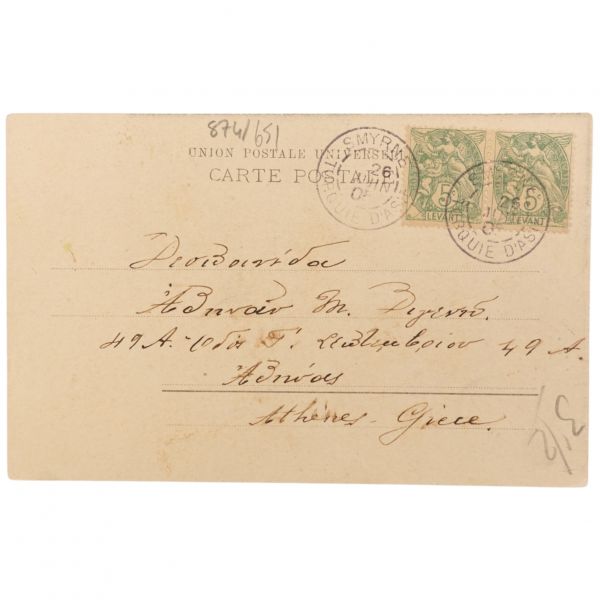 874/651
UNION POSTALE UNIVERSELLE
CARTE POSTALE
SMYRNE
26
JUIN
05
TURQUIE D'ASIE
5 5
LEVANT LEVANT
Δεσποινίδα
Ἀθηνᾶν Μ.
49 Α. Ὁδὸς Γ. Σεπτεμβρίου 49 Α.
Ἀθήνας
Athènes - Grèce.